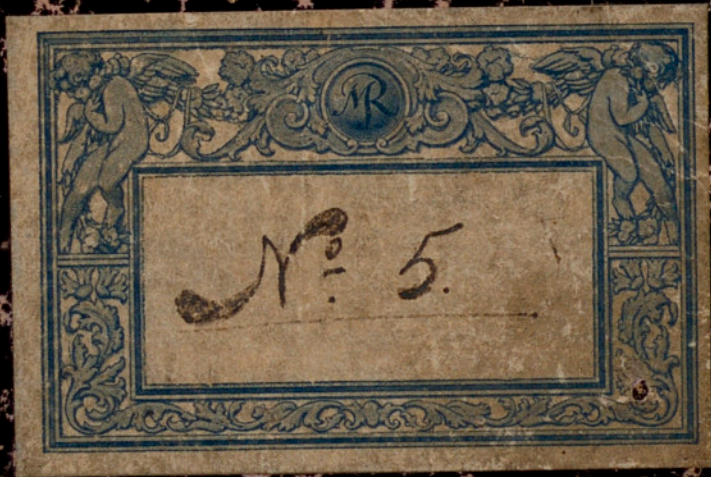 MR
Nº 5.